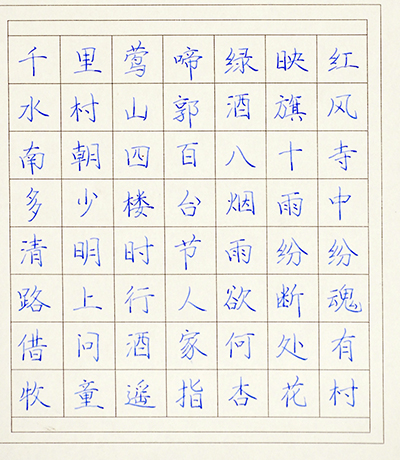 千里莺啼绿映红
水村山郭酒旗风
南朝四百八十寺
多少楼台烟雨中
清明时节雨纷纷
路上行人欲断魂
借问酒家何处有
牧童遥指杏花村